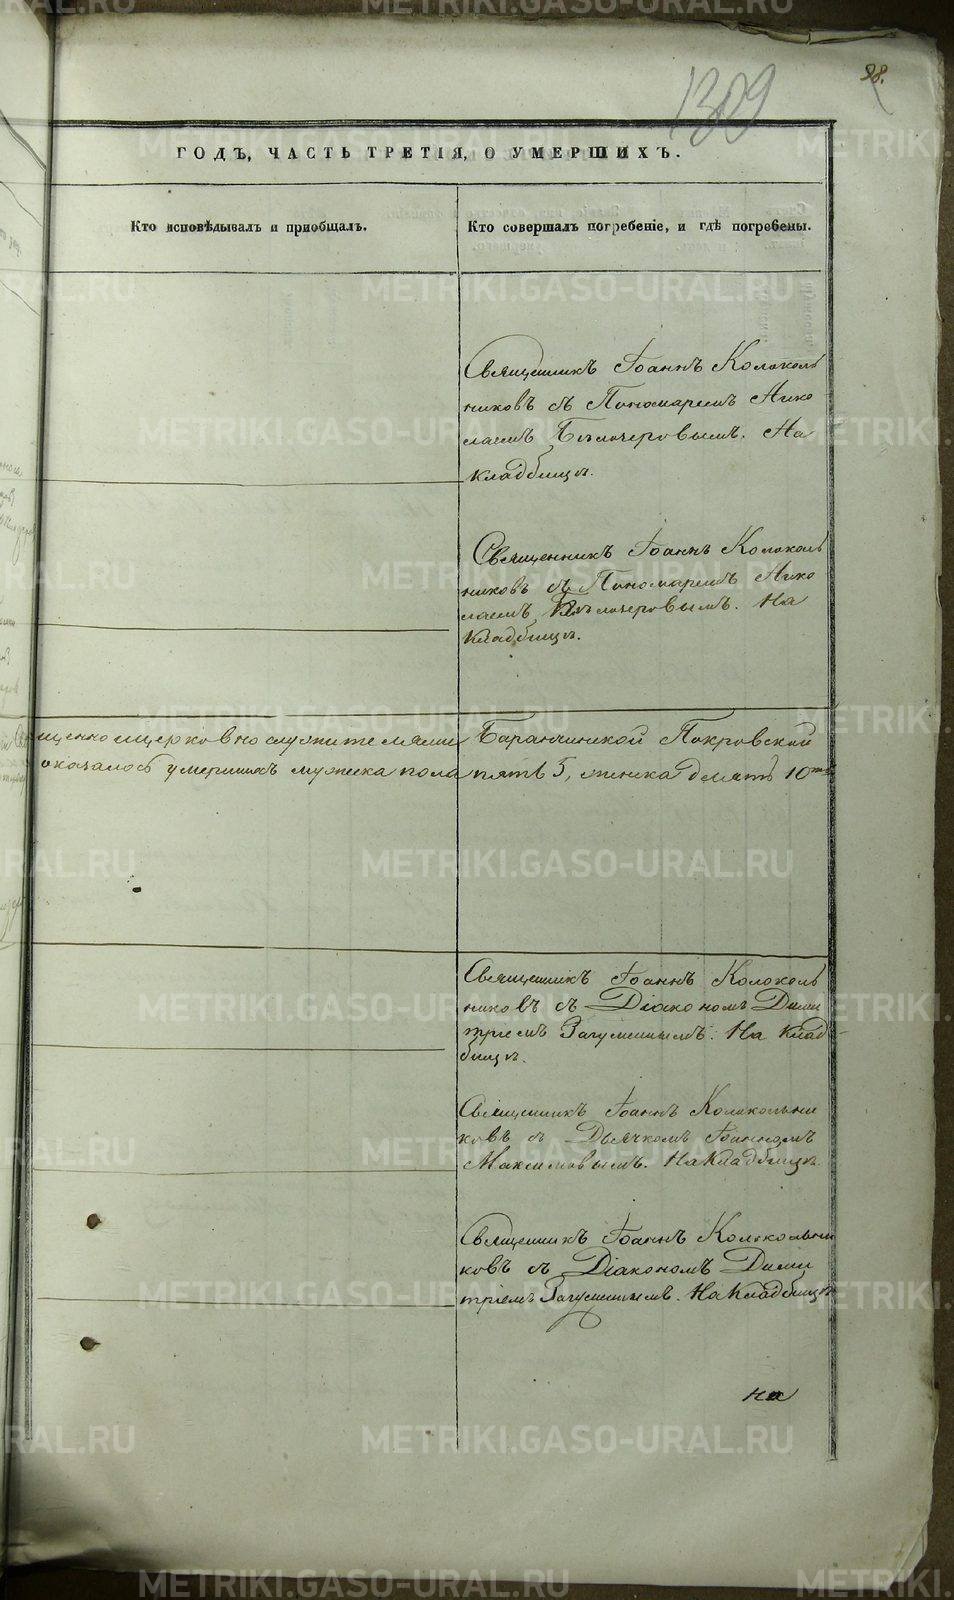 1309
88.
ГОДЪ, ЧАСТЬ ТРЕТІЯ, О УМЕРШИХЪ.
Кто исповѣдывалъ и приобщалъ.
Кто совершалъ погребеніе, и гдѣ погребены.
Священникъ Іоаннъ Колоколь
никовъ съ Пономаремъ Нико
лаемъ Бѣлочеровымъ. На
кладбищѣ.
Священникъ Іоаннъ Колоколь
никовъ съ Пономаремъ Нико
лаемъ Бѣлочеровымъ. На
Кладбищѣ.
щенноцерковнослужителями Баранчинской Покровской
оказалось умершихъ мужска пола пять 5, женска десять 10
Священникъ Іоаннъ Колоколь
никовъ съ Діакономъ Дими
тріемъ Загуменнымъ. На Клад-
бищѣ.
Священникъ Іоаннъ Колокольни
ковъ съ Дьячкомъ Іоанномъ
Максимовымъ. На Кладбищѣ.
Священникъ Іоаннъ Колокольни
ковъ съ Діакономъ Дими
тріемъ Загуменнымъ. На Кладбищѣ
на
METRIKI.GASO-URAL.RU